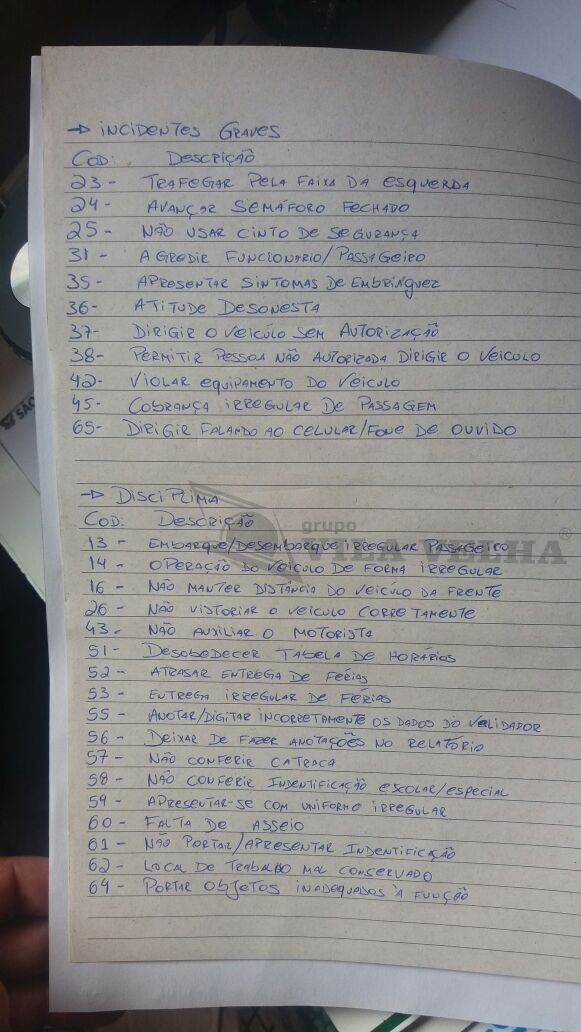 → INCIDENTES GRAVES
COD: DESCRIÇÃO
23 - TRAFEGAR PELA FAIXA DA ESQUERDA
24 - AVANÇAR SEMÁFORO FECHADO
25 - NÃO USAR CINTO DE SEGURANÇA
31 - AGREDIR FUNCIONARIO/PASSAGEIRO
35 - APRESENTAR SINTOMAS DE EMBRINGUEZ
36 - ATITUDE DESONESTA
37 - DIRIGIR O VEICÚLO SEM AUTORIZAÇÃO
38 - PERMITIR PESSOA NÃO AUTORIZADA DIRIGIR O VEICULO
42 - VIOLAR EQUIPAMENTO DO VEICULO
45 - COBRANÇA IRREGULAR DE PASSAGEM
65 - DIRIGIR FALANDO AO CELULAR/FONE DE OUVIDO
→ DISCIPLINA
COD: DESCRIÇÃO
grupo
VILA VELHA®
13 - EMBARQUE/DESEMBARQUE IRREGULAR PASSAGEIRO
14 - OPERAÇÃO DO VEICULO DE FORMA IRREGULAR
16 - NÃO MANTER DISTÂNCIA DO VEICULO DA FRENTE
26 - NÃO VISTORIAR O VEICULO CORRETAMENTE
43 - NÃO AUXILIAR O MOTORISTA
51 - DESOBEDECER TABELA DE HORÁRIOS
52 - ATRASAR ENTREGA DE FÉRIAS
53 - ENTREGA IRREGULAR DE FÉRIAS
55 - ANOTAR/DIGITAR INCORRETAMENTE OS DADOS DO VALIDADOR
56 - DEIXAR DE FAZER ANOTAÇÕES NO RELATÓRIO
57 - NÃO CONFERIR CATRACA
58 - NÃO CONFERIR INDENTIFICAÇÃO ESCOLAR/ESPECIAL
59 - APRESENTAR-SE COM UNIFORME IRREGULAR
60 - FALTA DE ASSEIO
61 - NÃO PORTAR/APRESENTAR INDENTIFICAÇÃO
62 - LOCAL DE TRABALHO MAL CONSERVADO
64 - PORTAR OBJETOS INADEQUADOS À FUNÇÃO